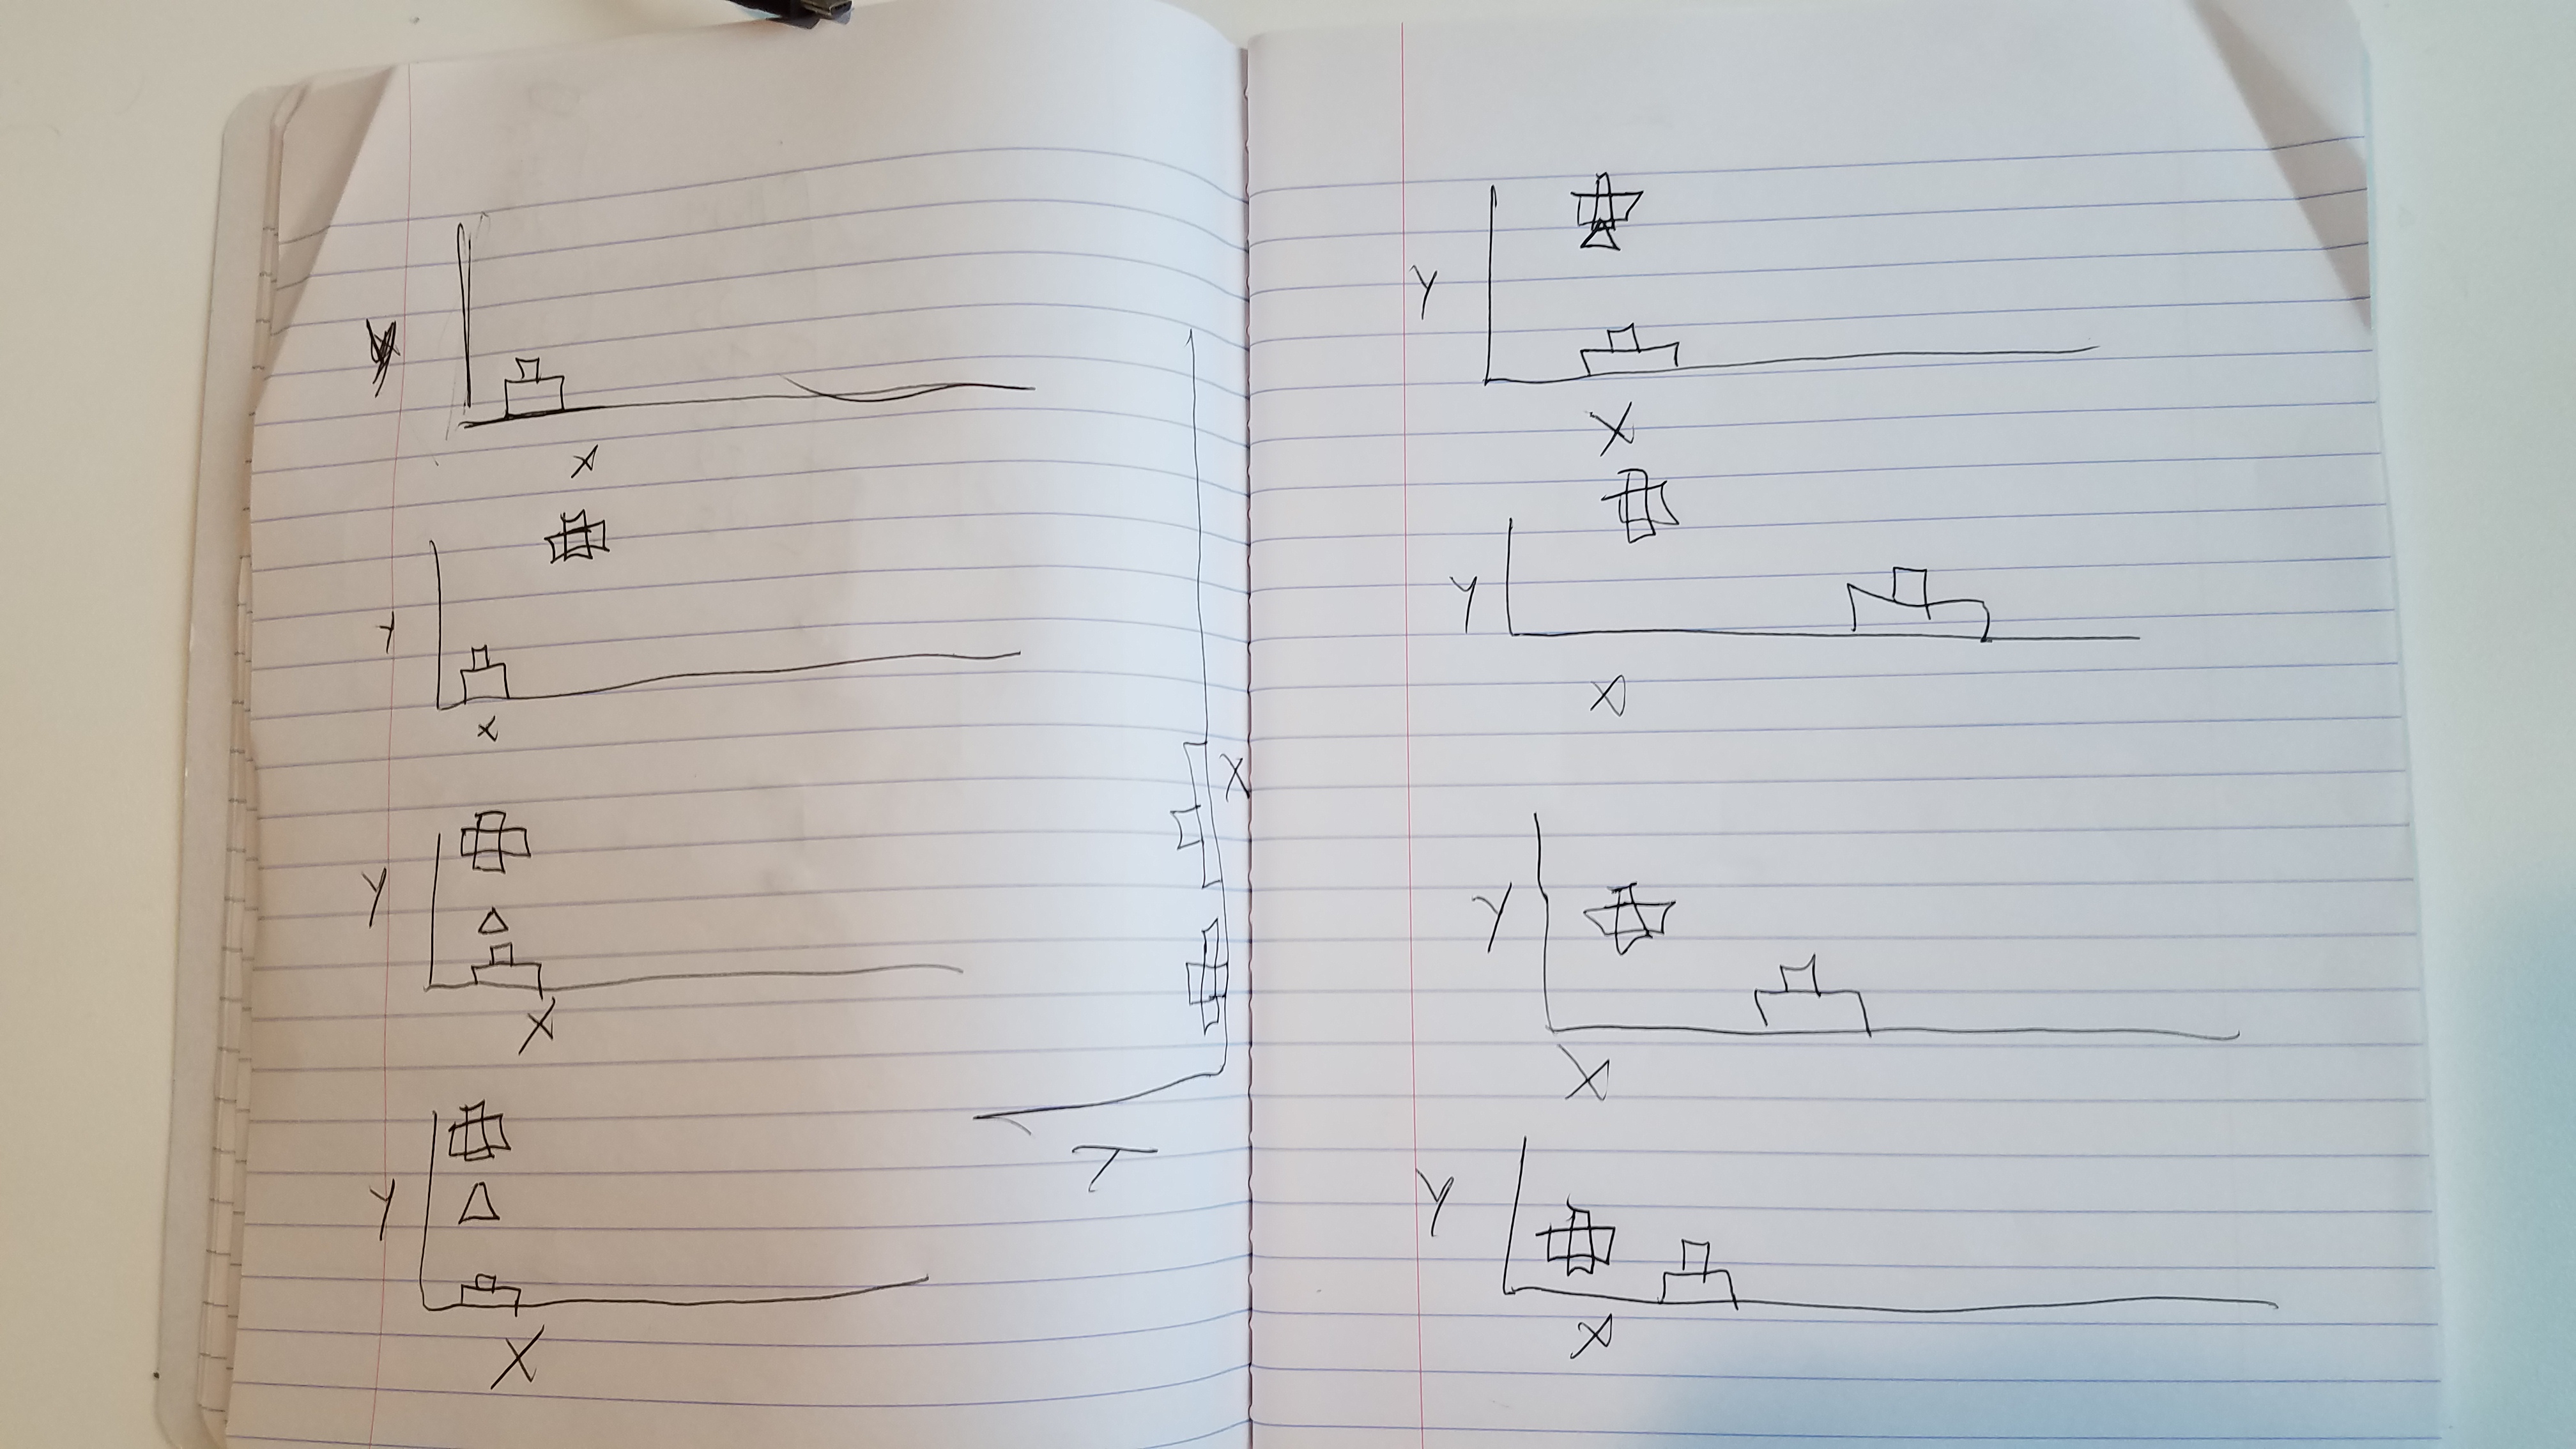 X
Y
X
Y
X
Y
X
Y
X
Y
X
Y
X
Y
X
Y
X